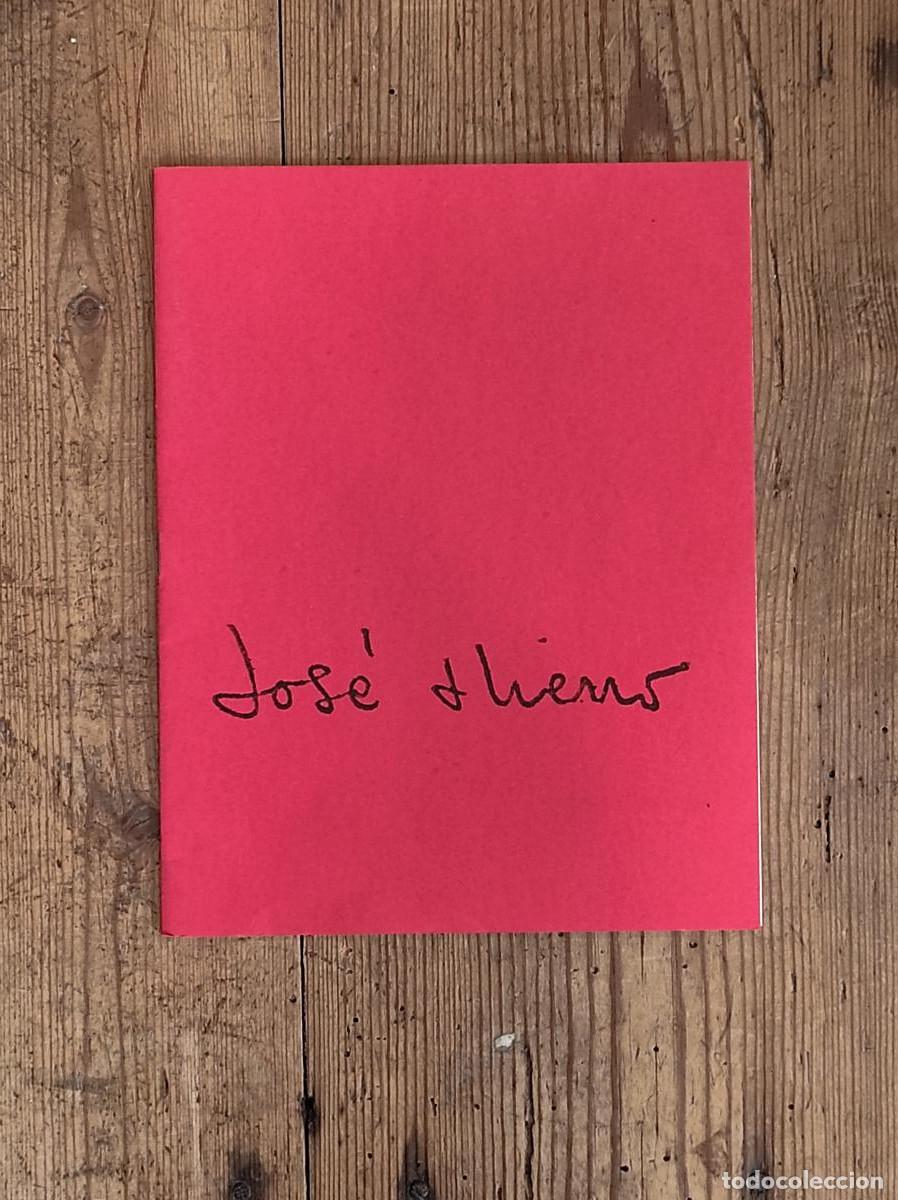 José Hierro
todocoleccion